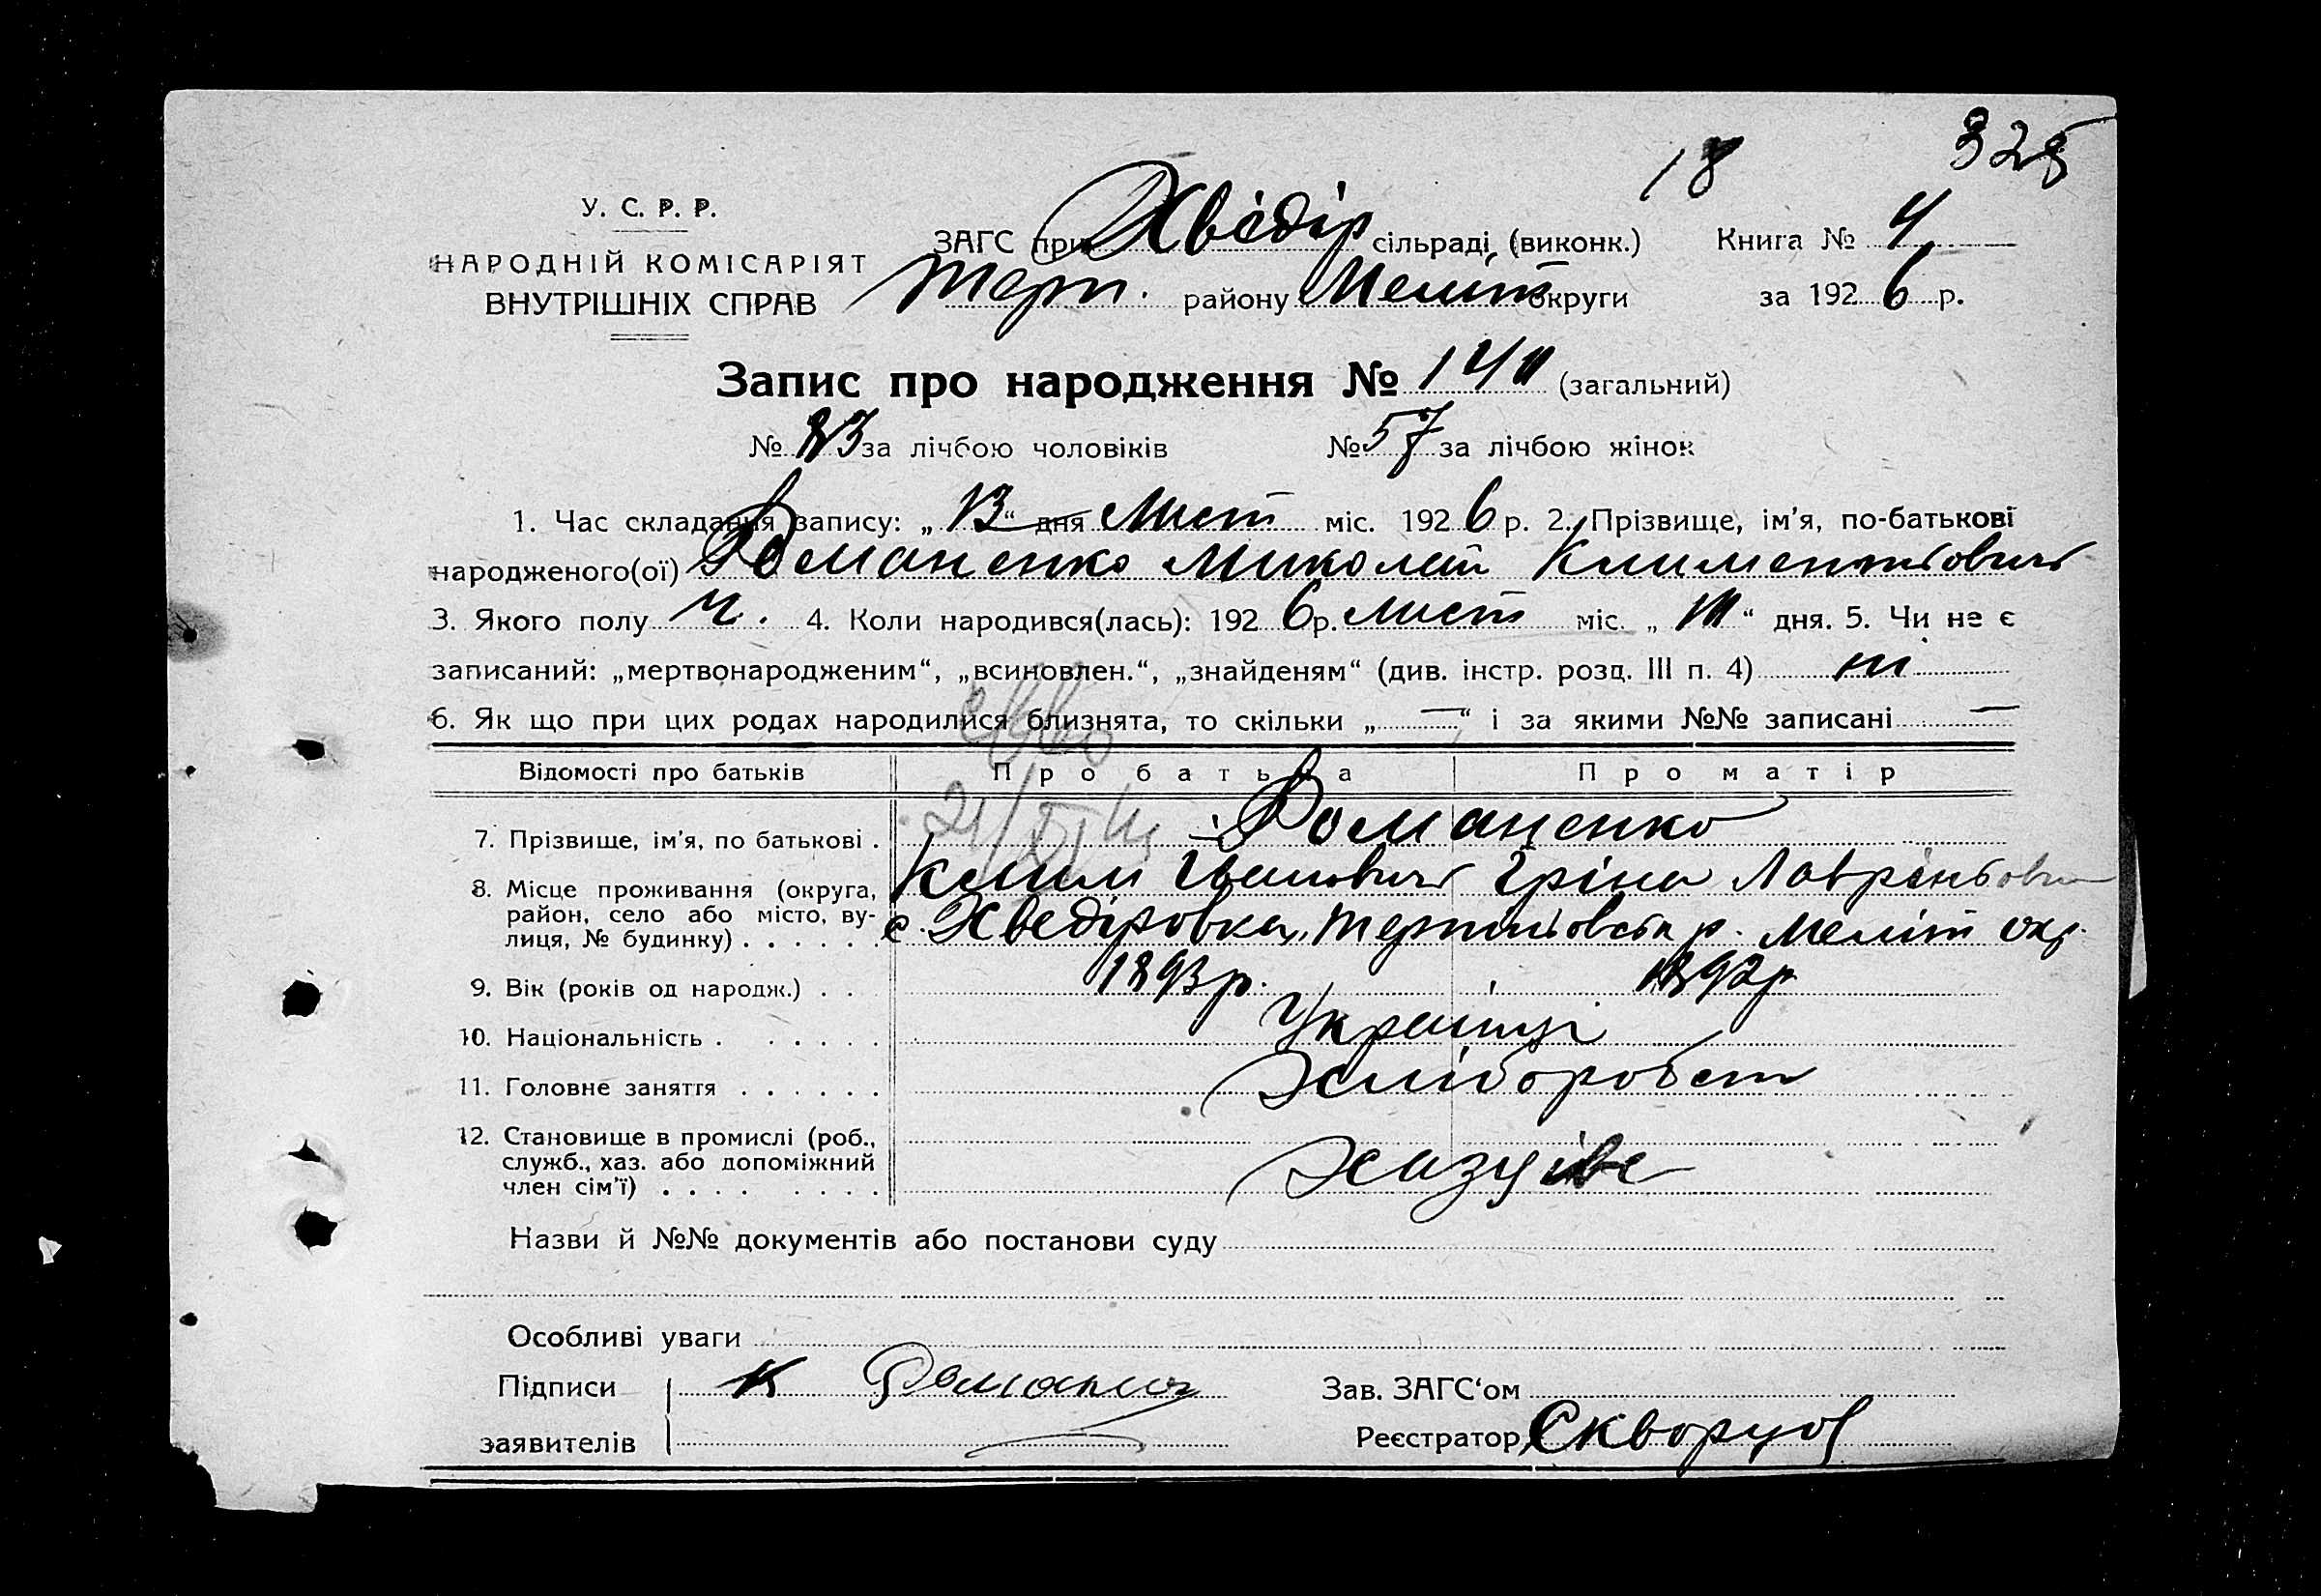 18 325
У. С. Р. Р.
НАРОДНІЙ КОМІСАРІЯТ
ВНУТРІШНІХ СПРАВ
ЗАГС при Хведір сільраді (виконк.) Книга № 4
Терп. району Меліт округи за 1926 р.
Запис про народження № 140 (загальний)
№ 83 за лічбою чоловіків № 57 за лічбою жінок
1. Час складання запису: „13“ дня Лист міс. 1926 р. 2. Прізвище, ім'я, по-батькові
народженого(ої) Романенко Миколай Климентьович
3. Якого полу ч. 4. Коли народився(лась): 1926 р. лист міс. „ “ дня. 5. Чи не є
записаний: „мертвонародженим“, „всиновлен.“, „знайденям“ (див. інстр. розд. III п. 4) ні
6. Як що при цих родах народилися близнята, то скільки „—“ і за якими №№ записані —
Відомості про батьків Про батька Про матір
7. Прізвище, ім'я, по батькові . Романенко
Клим Іванович Іріна Лаврентьовна
8. Місце проживання (округа,
район, село або місто, ву-
лиця, № будинку) . . . . . . с. Хведіровка, Терпіньовськ р. Меліт окр.
9. Вік (років од народж.) . . 1893 р. 1892 р
10. Національність . . . . . . Українці
11. Головне заняття . . . . . . Хліборобст
12. Становище в промислі (роб.,
служб., хаз. або допоміжний
член сім'ї) . . . . . . . . Хазуїве
Назви й №№ документів або постанови суду
Особливі уваги
Підписи К Романен Зав. ЗАГС‘ом
заявителів Реєстратор Скворцов